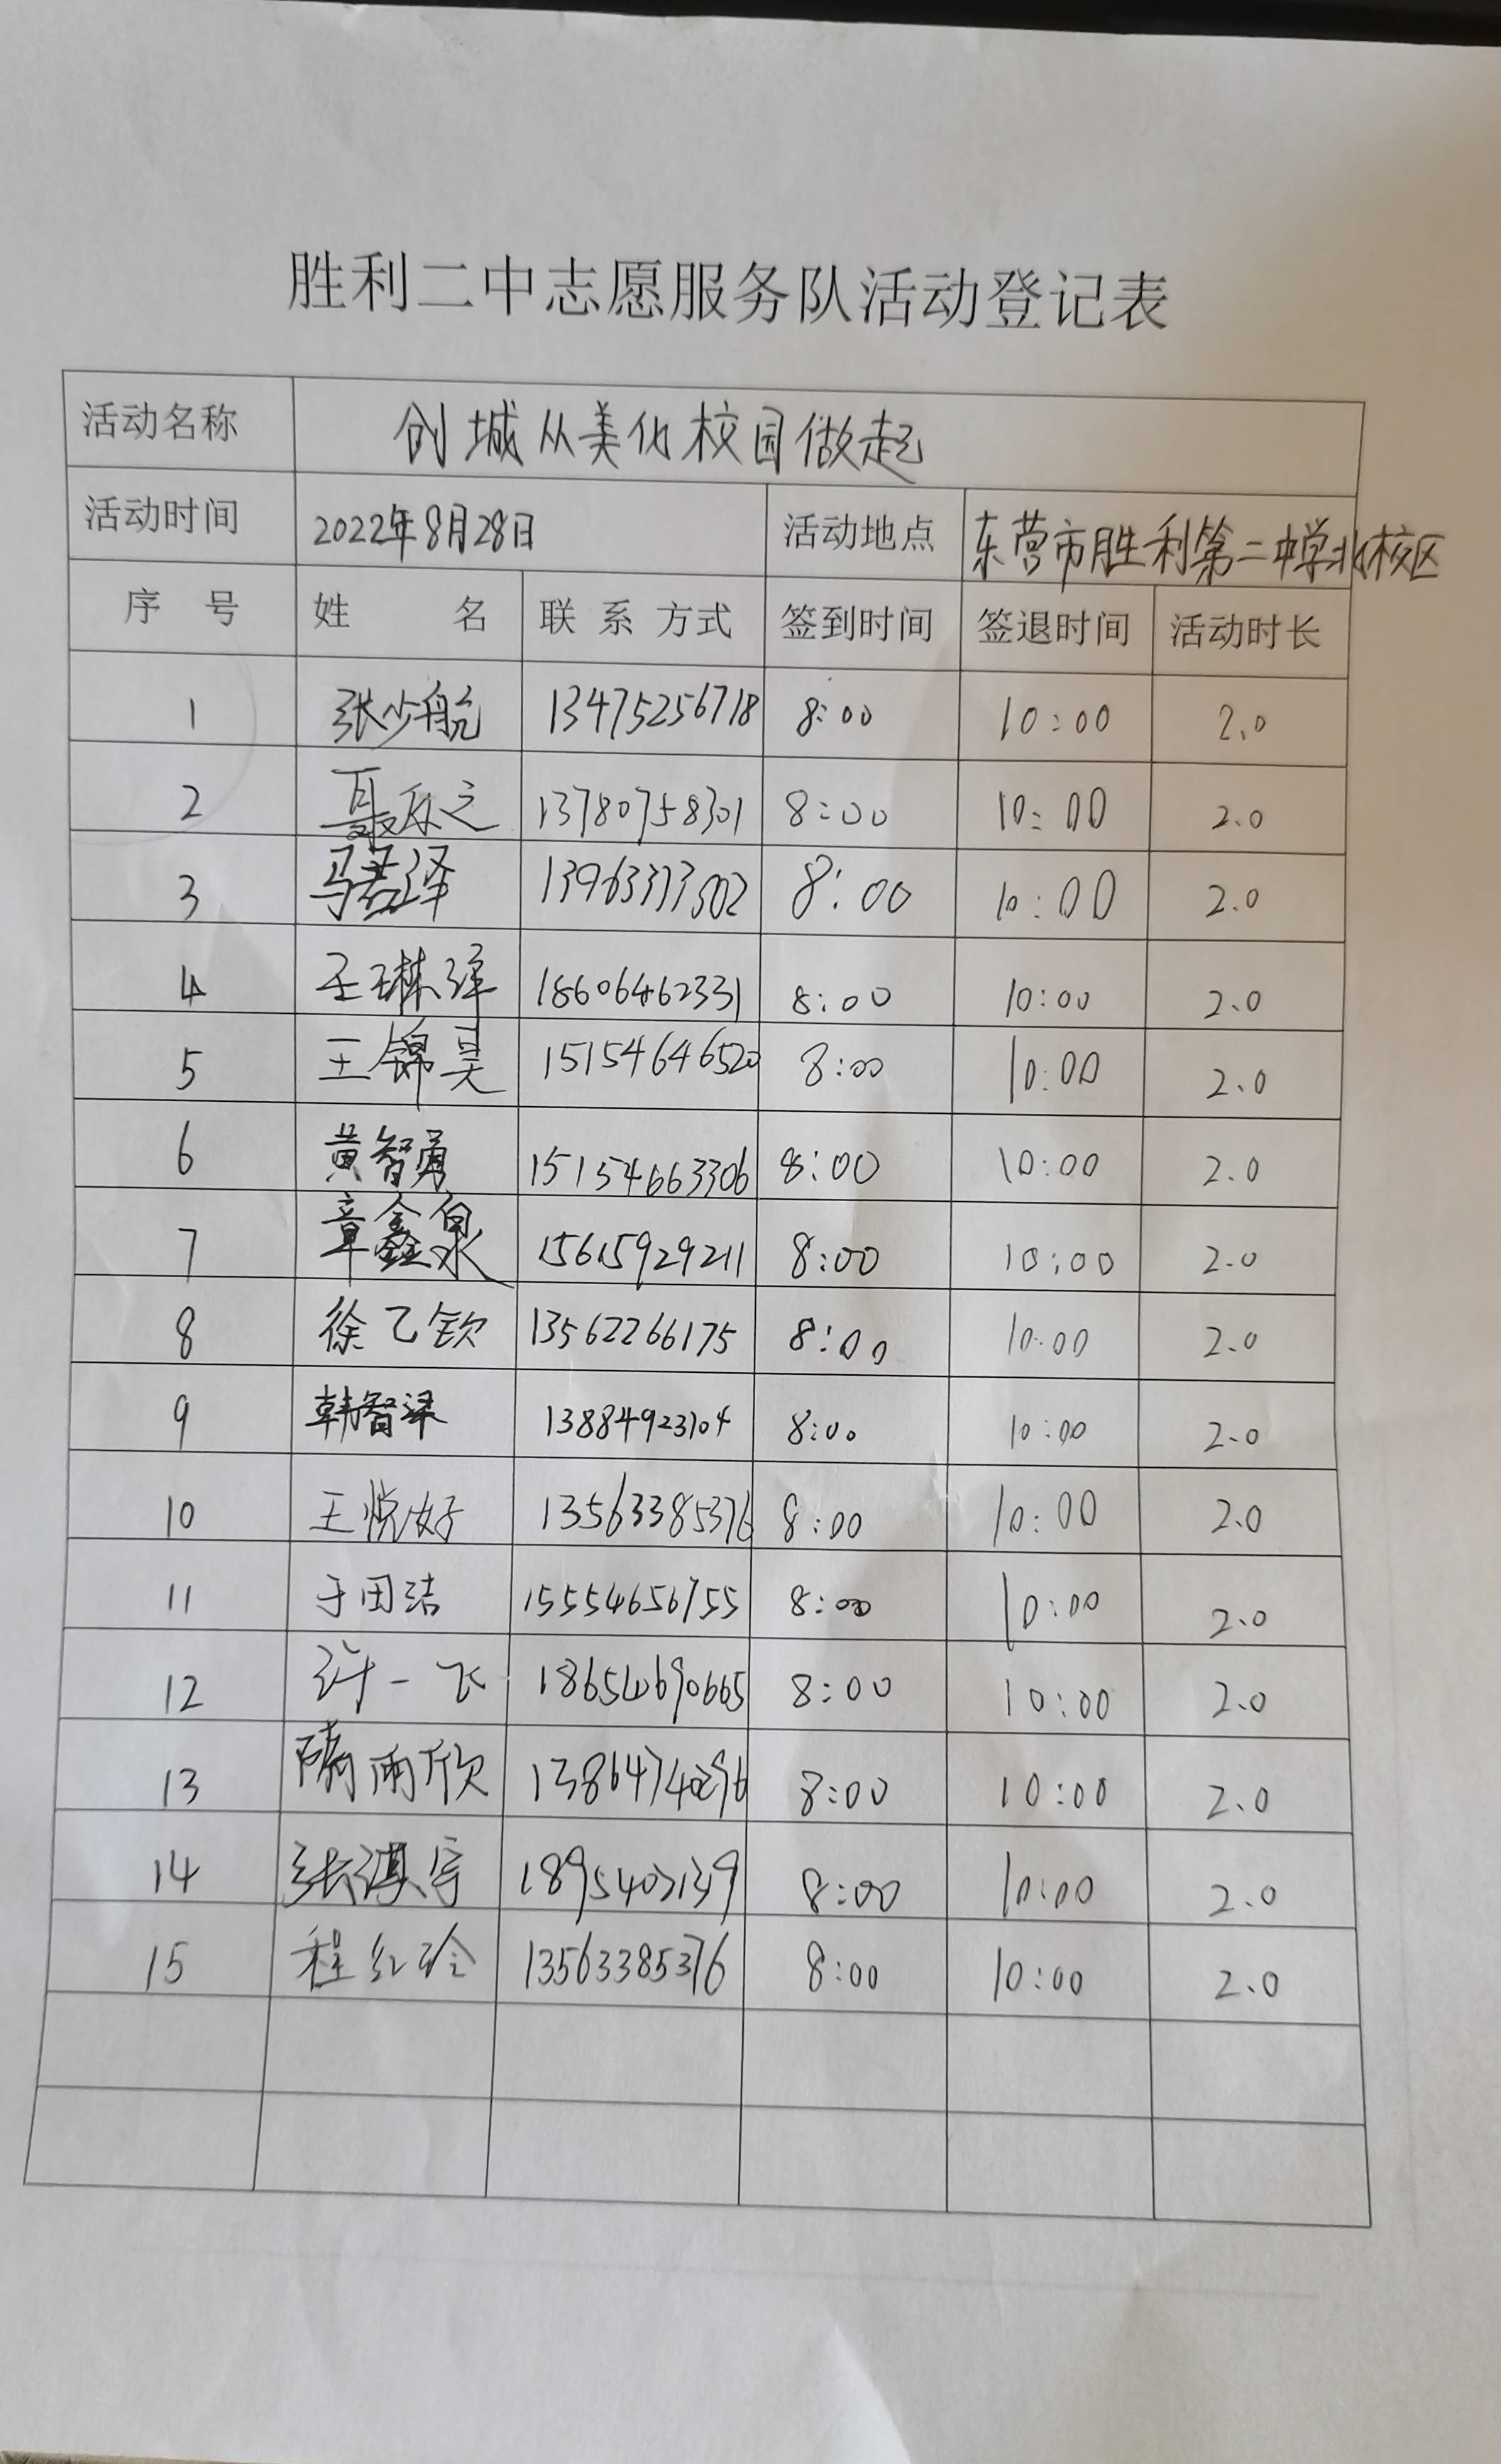 胜利二中志愿服务队活动登记表
活动名称 创城从美化校园做起
活动时间 2022年8月28日 活动地点 东营市胜利第二中学北校区
序号 姓名 联系方式 签到时间 签退时间 活动时长
1 张少航 13475256718 8:00 10:00 2.0
2 聂乐之 13780758301 8:00 10:00 2.0
3 马若泽 13963373502 8:00 10:00 2.0
4 王琳泽 18606462331 8:00 10:00 2.0
5 王锦昊 15154646520 8:00 10:00 2.0
6 黄智勇 15154663306 8:00 10:00 2.0
7 章鑫泉 15615929211 8:00 10:00 2.0
8 徐乙钦 13562266175 8:00 10:00 2.0
9 韩智 13884923104 8:00 10:00 2.0
10 王悦好 13563385376 8:00 10:00 2.0
11 于田洁 15554656755 8:00 10:00 2.0
12 许一飞 18654690665 8:00 10:00 2.0
13 雨欣 8:00 10:00 2.0
14 张淇宇 8:00 10:00 2.0
15 程红玲 13563385376 8:00 10:00 2.0